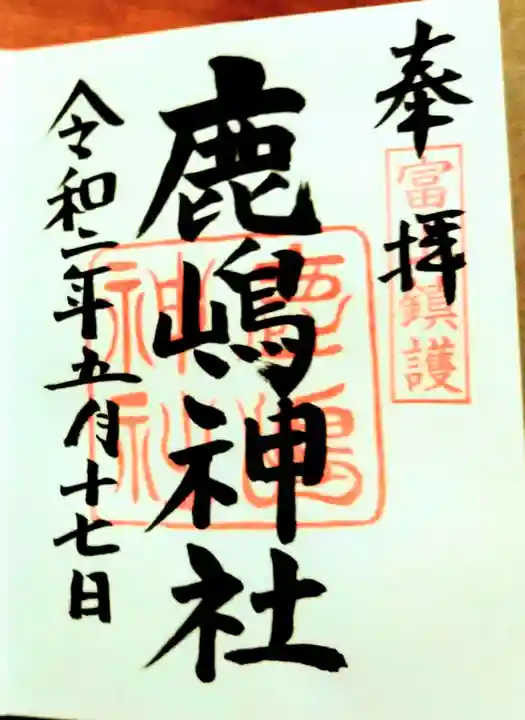 奉拝
富 鎮護
鹿嶋神社
鹿嶋神社
令和二年五月十七日